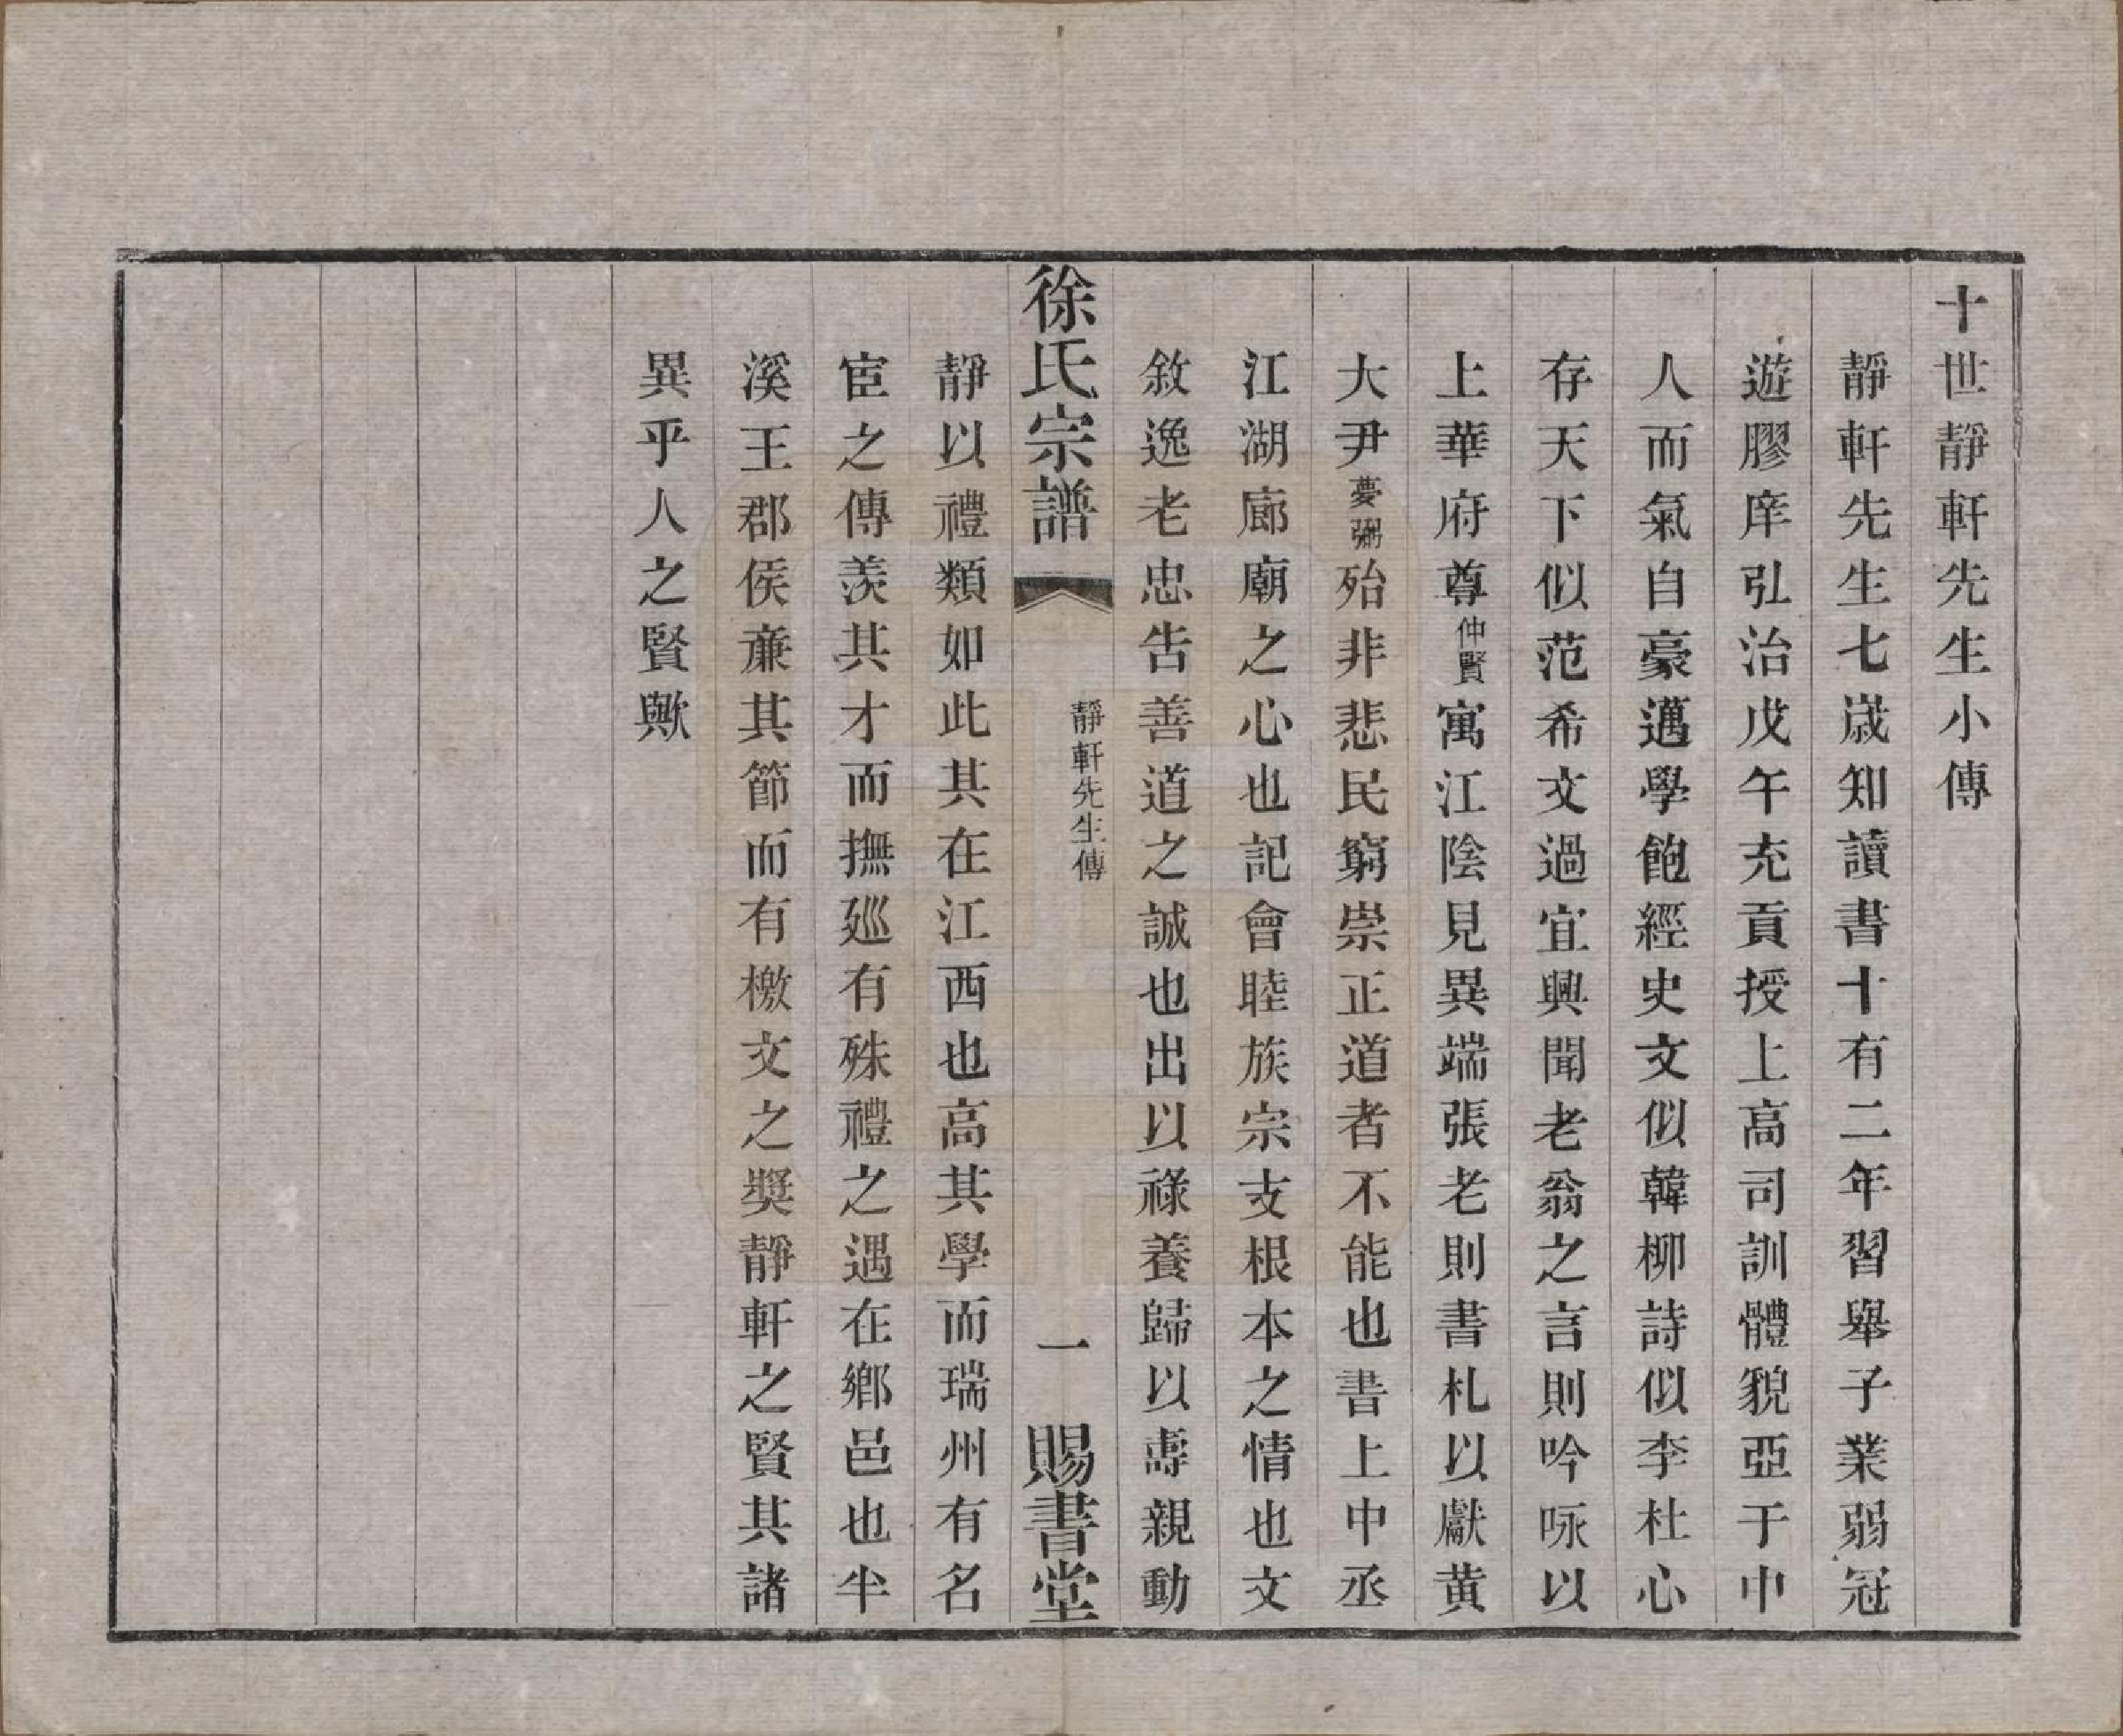 十世靜軒先生小傳
靜軒先生七歲知讀書十有二年習舉子業弱冠
遊膠庠弘治戊午充貢授上高司訓體貌亞于中
人而氣自豪邁學飽經史文似韓柳詩似李杜心
存天下似范希文過宜興聞老翁之言則吟咏以
上華府尊仲賢寓江陰見異端張老則書札以獻黄
大尹夢弼殆非悲民窮崇正道者不能也書上中丞
江湖廊廟之心也記會睦族宗支根本之情也文
敘逸老忠吿善道之誠也出以祿養歸以壽親動
徐氏宗譜 靜軒先生傳 一 賜書堂
靜以禮類如此其在江西也高其學而瑞州有名
宦之傳羡其才而撫廵有殊禮之遇在鄉邑也半
溪王郡侯亷其節而有檄文之奬靜軒之賢其諸
異乎人之賢歟